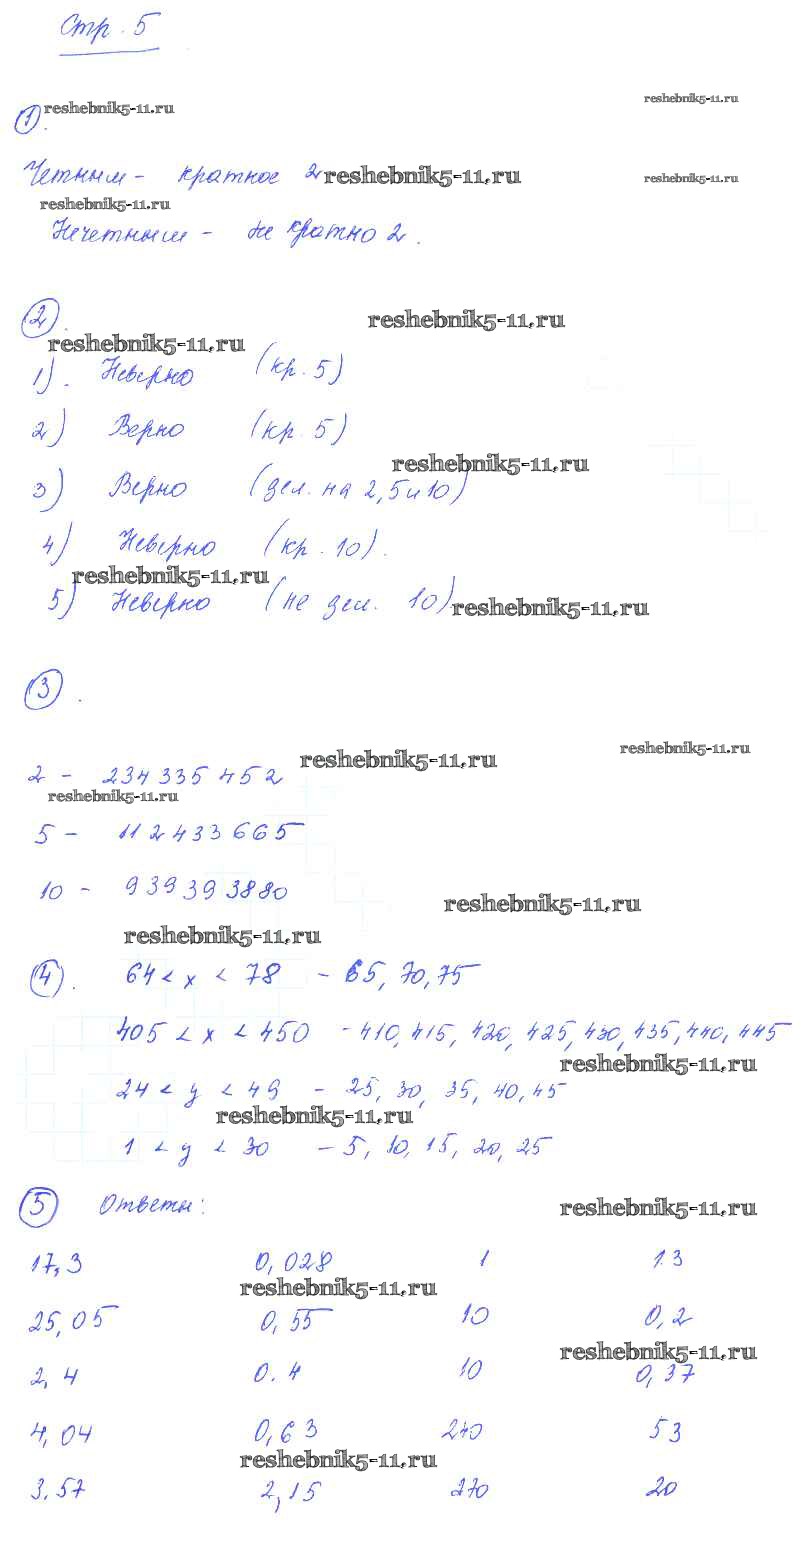 Стр. 5
reshebnik5-11.ru reshebnik5-11.ru
1.
Четным - кратное 2 reshebnik5-11.ru reshebnik5-11.ru
reshebnik5-11.ru
Нечетным - не кратно 2.
2. reshebnik5-11.ru
reshebnik5-11.ru
1). Неверно (кр. 5)
2) Верно (кр. 5)
reshebnik5-11.ru
3) Верно (дел. на 2, 5 и 10)
4) Неверно (кр. 10).
reshebnik5-11.ru
5) Неверно (не дел. 10) reshebnik5-11.ru
3.
reshebnik5-11.ru reshebnik5-11.ru
2 - 234 335 452
reshebnik5-11.ru
5 - 112 433 665
10 - 939393880
reshebnik5-11.ru
reshebnik5-11.ru
4. 64 < x < 78 - 65, 70, 75
405 < x < 450 - 410, 415, 420, 425, 430, 435, 440, 445
reshebnik5-11.ru
24 < y < 49 - 25, 30, 35, 40, 45
reshebnik5-11.ru
1 < y < 30 - 5, 10, 15, 20, 25
5 Ответы: reshebnik5-11.ru
17,3 0,028 1 13
reshebnik5-11.ru
25,05 0,55 10 0,2
reshebnik5-11.ru
2,4 0.4 10 0,37
4,04 0,63 240 53
reshebnik5-11.ru
3.57 2,15 270 20